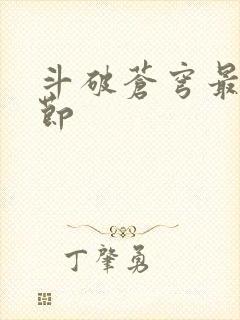 斗破苍穹最
节
丁肇勇